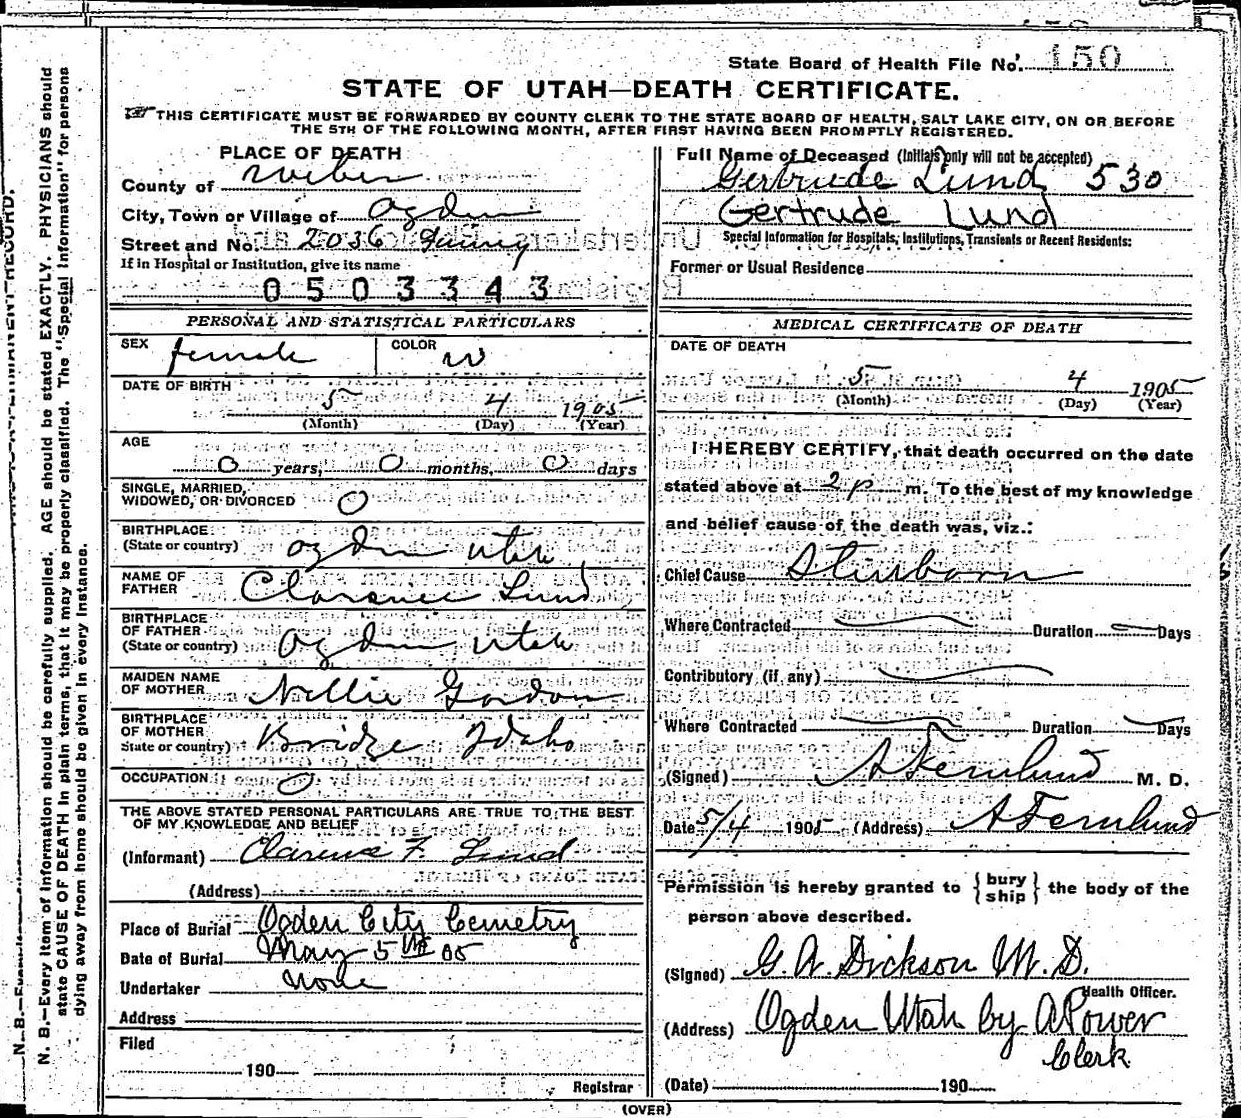 State Board of Health File No. 150
STATE OF UTAH—DEATH CERTIFICATE.
THIS CERTIFICATE MUST BE FORWARDED BY COUNTY CLERK TO THE STATE BOARD OF HEALTH, SALT LAKE CITY, ON OR BEFORE
THE 5TH OF THE FOLLOWING MONTH, AFTER FIRST HAVING BEEN PROMPTLY REGISTERED.
PLACE OF DEATH
County of Weber
City, Town or Village of Ogden
Street and No. 2036
If in Hospital or Institution, give its name
0503343
Full Name of Deceased (Initials only will not be accepted)
Gertrude Lund 530
Gertrude Lund
Special Information for Hospitals, Institutions, Transients or Recent Residents:
Former or Usual Residence
PERSONAL AND STATISTICAL PARTICULARS
SEX female COLOR W
DATE OF BIRTH
5 4 1905
(Month) (Day) (Year)
AGE
0 years, 0 months, 0 days
SINGLE, MARRIED,
WIDOWED, OR DIVORCED 0
BIRTHPLACE
(State or country) Ogden Utah
NAME OF
FATHER Clarence Lund
BIRTHPLACE
OF FATHER
(State or country) Ogden Utah
MAIDEN NAME
OF MOTHER Nellie Gordon
BIRTHPLACE
OF MOTHER
State or country) Bridge Idaho
OCCUPATION 0
THE ABOVE STATED PERSONAL PARTICULARS ARE TRUE TO THE BEST
OF MY KNOWLEDGE AND BELIEF
(Informant) Clarence F. Lund
(Address)
Place of Burial Ogden City Cemetry
Date of Burial May 5th 05
Undertaker None
Address
Filed
190
Registrar
MEDICAL CERTIFICATE OF DEATH
DATE OF DEATH
5 4 1905
(Month) (Day) (Year)
I HEREBY CERTIFY, that death occurred on the date
stated above at 2 p m. To the best of my knowledge
and belief cause of the death was, viz.:
Chief Cause Stillborn
Where Contracted Duration Days
Contributory (if any)
Where Contracted Duration Days
(Signed) A Fernlund M. D.
Date 5/4 1905 (Address) A Fernlund
Permission is hereby granted to { bury
ship } the body of the
person above described.
(Signed) G. W. Dickson M. D.
Health Officer.
(Address) Ogden Utah by A Power
Clerk
(Date) 190
(OVER)
N. B.—Every item of information should be carefully supplied. AGE should be stated EXACTLY. PHYSICIANS should
state CAUSE OF DEATH in plain terms, that it may be properly classified. The "Special Information" for persons
dying away from home should be given in every instance.